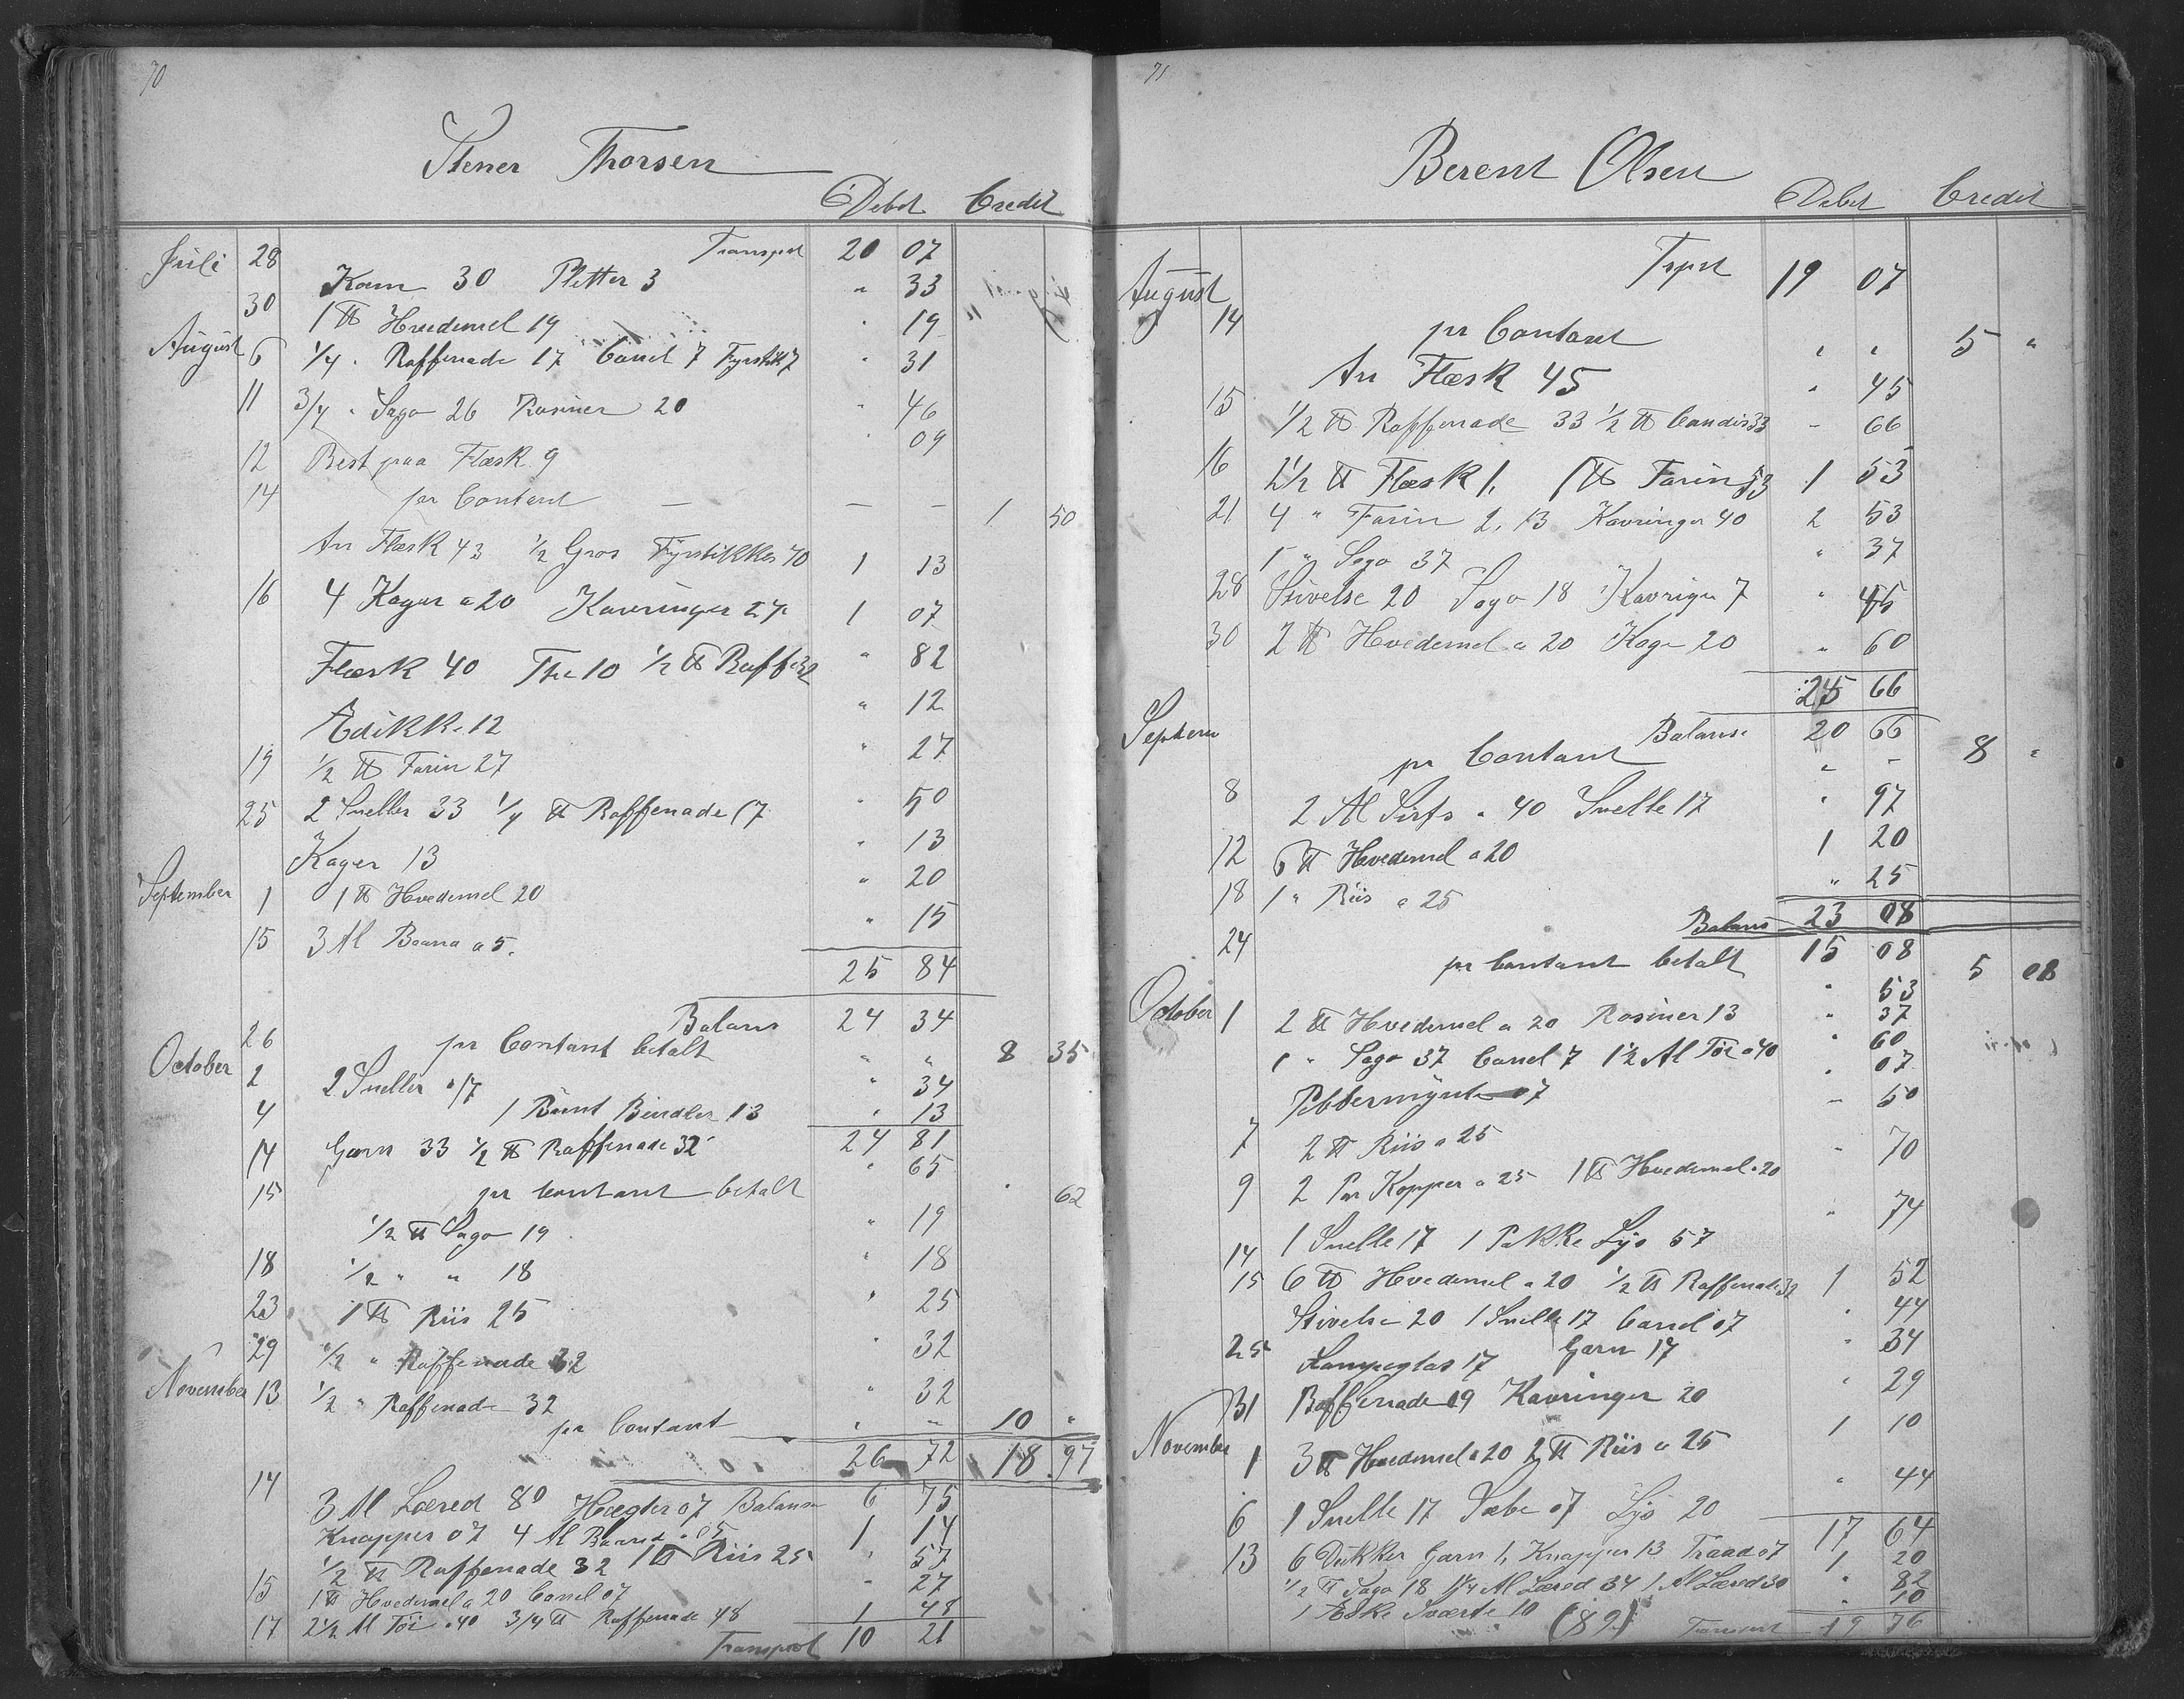 70
Stener Thorsen
Debet Credit
Juli 28 Transport 20 07
Kam 30 Pletter 3 " 33
30 1 ℔ Hvedemel 19 " 19
August 6 1/4 " Raffenade 17 Canel 7 Fyrstik 7 " 31
11 3/4 " Sago 26 Rosiner 20 " 46
12 Rest paa Flæsk 9 " 09
14 pr Contant — — — 1 50
An Flæsk 43 1/2 Gros Fyrstikkes 70 1 13
16 4 Kager a 20 Kavringer 27 1 07
Flæsk 40 The 10 1/2 ℔ Raff 32 " 82
Edikke 12 " 12
19 1/2 ℔ Farin 27 " 27
25 2 Sneller 33 1/4 ℔ Raffenade 17 " 50
Kager 13 " 13
September 1 1 ℔ Hvedemel 20 " 20
15 3 Al Baand a 5. " 15
25 84
Balans 24 34
26 pr Contant betalt " " 8 35
October 2 2 Sneller a 17 " 34
4 1 Bunt Bendler 13 " 13
24 81
14 Garn 33 1/2 ℔ Raffenade 32 " 65
15 pr Contant betalt " 62
1/2 ℔ Sago 19 " 19
18 1/2 " " 18 " 18
23 1 ℔ Riis 25 " 25
29 1/2 " Raffenade 32 " 32
November 13 1/2 " Raffenade 32 " 32
pr Contant " " 10 "
26 72 18 97
14 3 Al Læred 80 Hægter 07 Balanse 6 75
Knapper 07 4 Al Baand a 05 1 14
1/2 ℔ Raffenade 32 1 ℔ Riis 25 " 57
15 1 ℔ Hvedemel a 20 Canel 07 " 27
17 2 1/2 Al Töi a 40 3/4 ℔ Raffenade 48 1 48
Transport 10 21
71
Berent Olsen
Debet Credit
Trpst 19 07
August 14 pr Contant " " 5 "
An Flæsk 45 " 45
15 1/2 ℔ Raffenade 33 1/2 ℔ Candis 33 " 66
16 2 1/2 ℔ Flæsk 1. 1 ℔ Farin 53 1 53
21 4 " Farin 2,13 Kavringer 40 2 53
1 " Sago 37 " 37
28 Stivelse 20 Sago 18 Kavriger 7 " 45
30 2 ℔ Hvedemel a 20 Kage 20 " 60
25 66
Septem Balanse 20 66
pr Contant " - 8 "
8 2 Al Sirts a 40 Snelle 17 " 97
12 6 ℔ Hvedemel a 20 1 20
18 1 " Riis a 25 " 25
Balans 23 08
24 15 08
pr Contant betalt 5 08
October 1 2 ℔ Hvedemel a 20 Rosiner 13 " 53
1 " Sago 37 Canel 7 1 1/2 Al Töi a 40 " 37
" 60
Pebbermynte 07 " 07
7 2 ℔ Riis a 25 - 50
9 2 Par Kopper a 25 1 ℔ Hvedemel a 20 " 70
1 Snelle 17 1 Pakke Lys 57 " 74
14
15 6 ℔ Hvedemel a 20 1/2 ℔ Raffenade 32 1 52
Stivelse 20 1 Snelle 17 Canel 07 " 44
25 Lampeglas 17 Garn 17 " 34
31 Raffenade 09 Kavringer 20 " 29
November 1 3 ℔ Hvedemel a 20 2 ℔ Riis a 25 1 10
6 1 Snelle 17 Sæbe 07 Lys 20 " 44
17 64
13 6 Dukker Garn 1, Knapper 13 Traad 07 1 20
1/2 ℔ Sago 18 1 1/4 Al Læred 34 1 Al Læred 30 " 82
1 Æske Sværte 10 (89) " 10
Transport 19 76